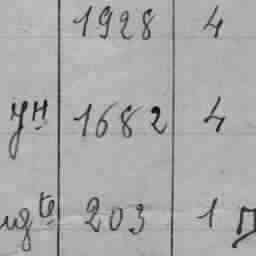 1928 4
ун 1682 4
203 1